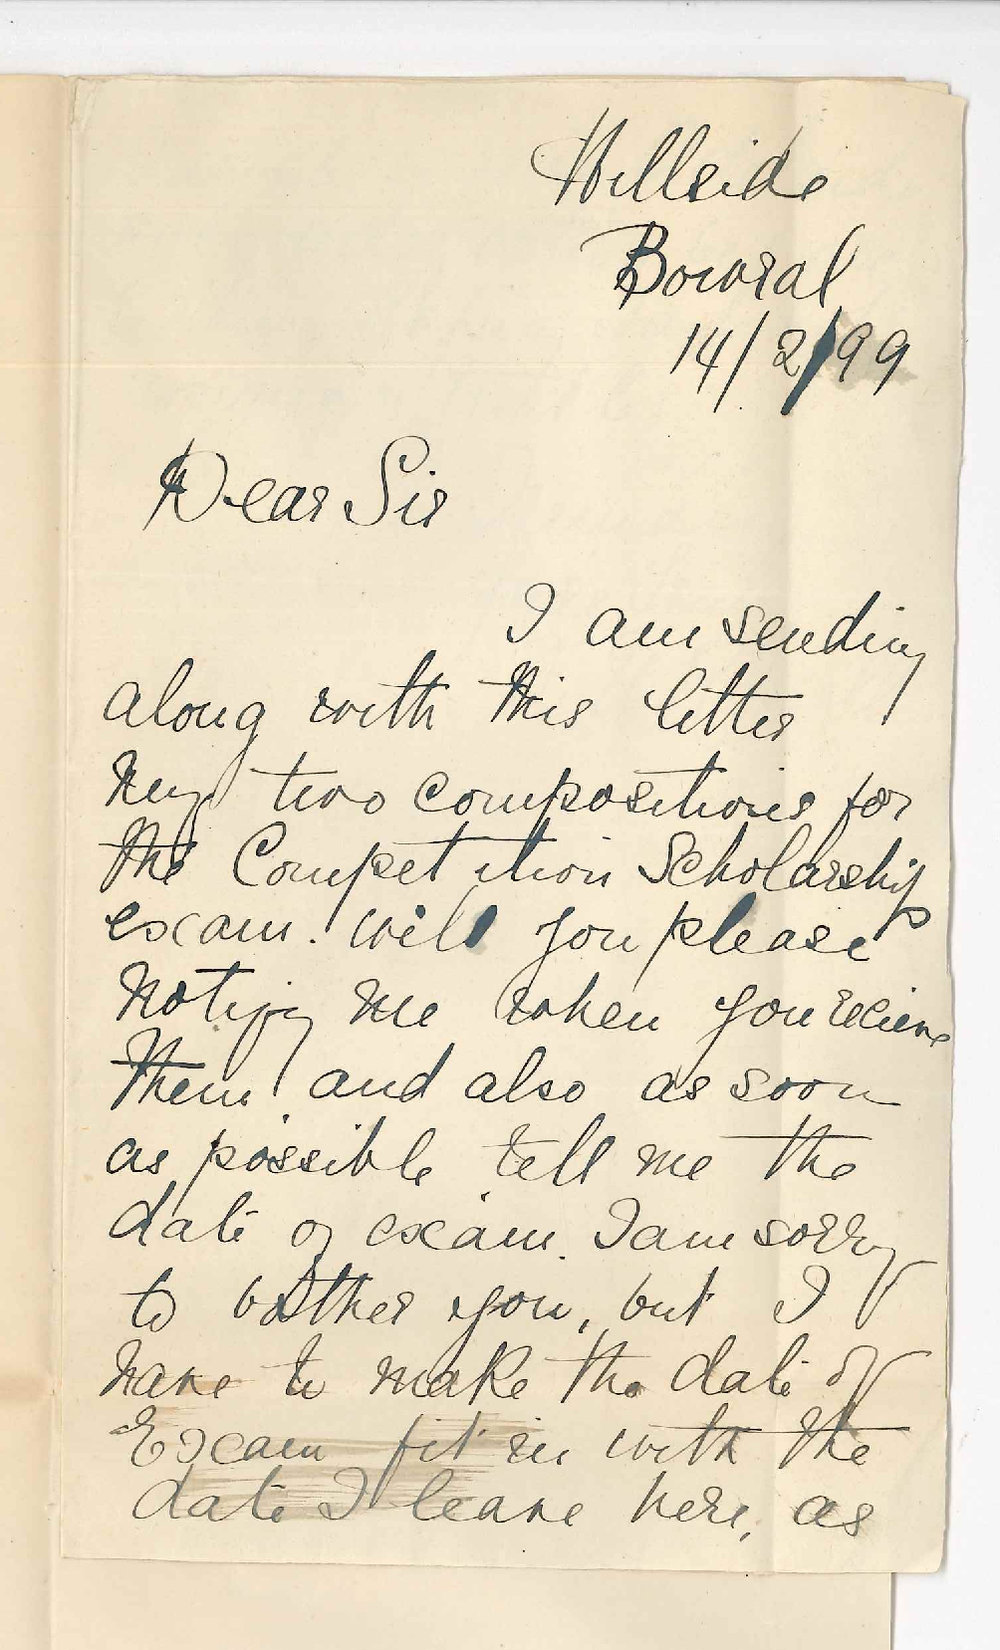 Hillside
Bowral
14/2/99
Dear Sir
I am sending
along with this letter
my two compositions for
the Competition Scholarship
exam. will you please
notify me when you recieve
them and also as soon
as possible tell me the
date of exam. I am sorry
to bother you, but I
have to make the date of
Exam fit in with the
date I leave here, as